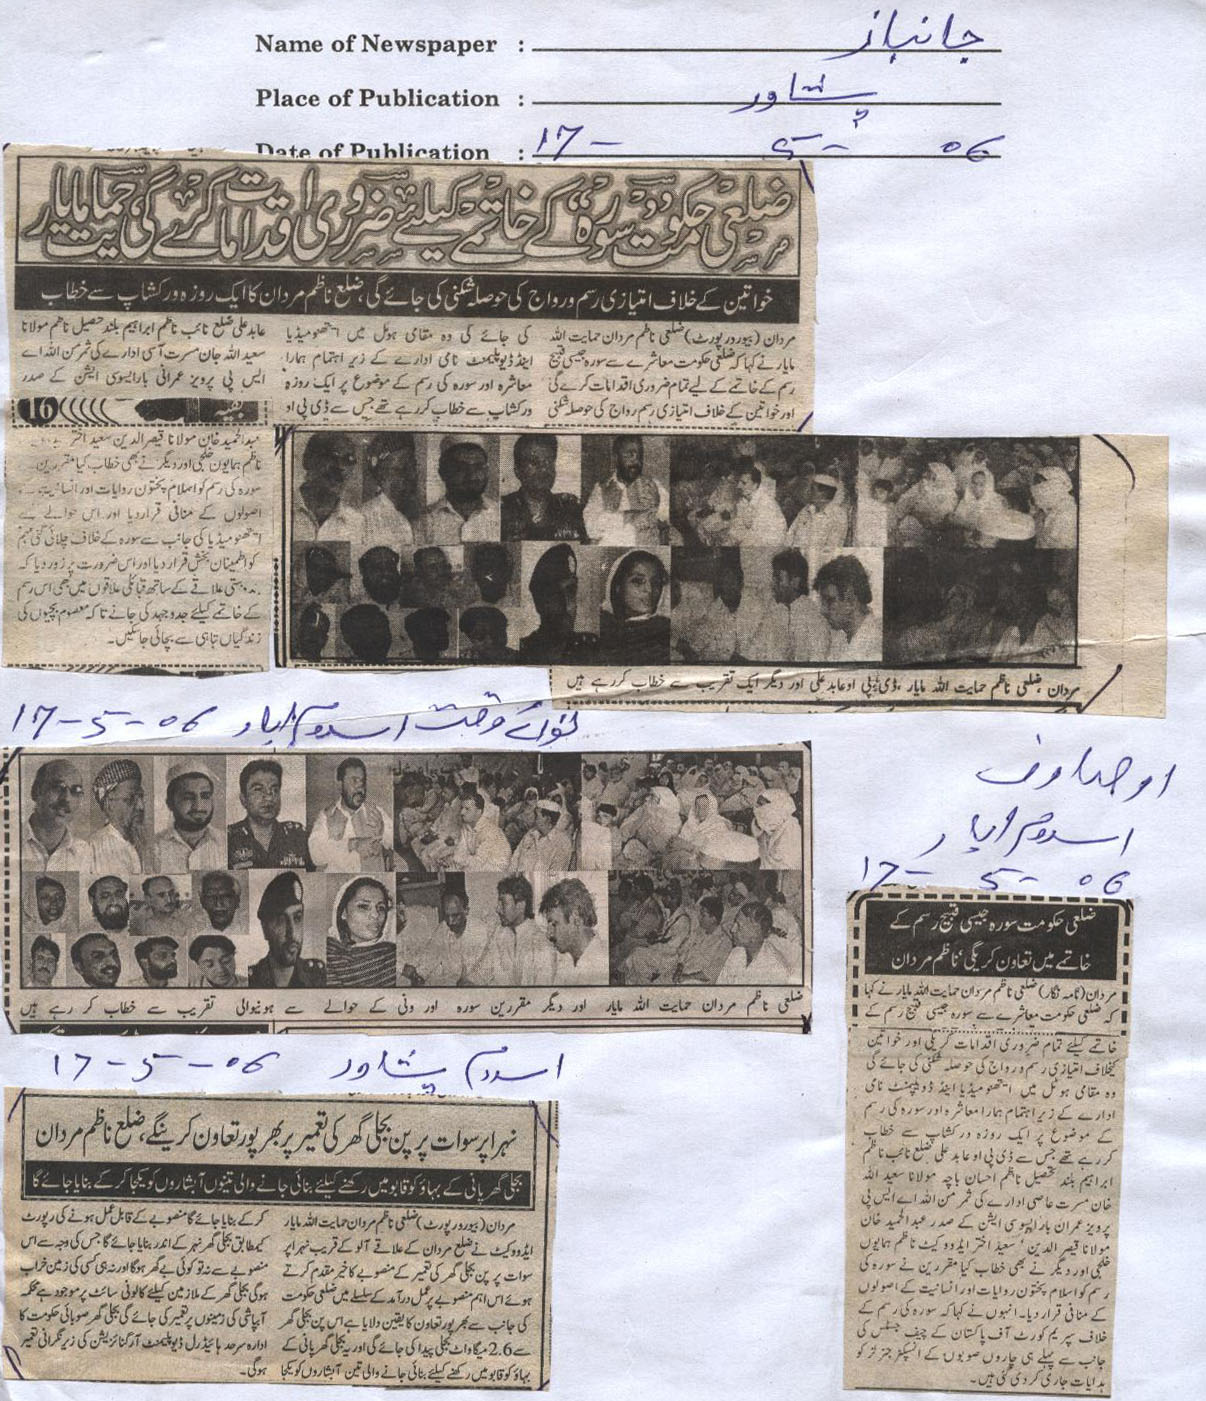 Name of Newspaper : جانباز
Place of Publication : پشاور
Date of Publication : 17- 5- 06
ضلعی حکومت "سورہ" کے خاتمے کیلئے ضروری اقدامات کرے گی، حمایت مایار
خواتین کے خلاف امتیازی رسم و رواج کی حوصلہ شکنی کی جائے گی، ضلع ناظم مردان کا ایک روزہ ورکشاپ سے خطاب
مردان (بیورو رپورٹ) ضلعی ناظم مردان حمایت اللہ
مایار نے کہا کہ ضلعی حکومت معاشرے سے سورہ جیسی قبیح
رسم کے خاتمے کے لیے تمام ضروری اقدامات کرے گی
اور خواتین کے خلاف امتیازی رسم رواج کی حوصلہ شکنی
کی جائے گی وہ مقامی ہوٹل میں اےتھنو میڈیا
اینڈ ڈیویلپمنٹ نامی ادارے کے زیر اہتمام ہمارا
معاشرہ اور سورہ کی رسم کے موضوع پر ایک روزہ
ورکشاپ سے خطاب کر رہے تھے جس سے ڈی پی او
عابد علی ضلع نائب ناظم ابراہیم بلند تحصیل ناظم مولانا
سعید اللہ جان مسرت آسی ادارے کی ثمر من اللہ اے
ایس پی پرویز عمرانی بار ایسوسی ایشن کے صدر
بقیہ 16
عبدالحمید خان مولانا قیصر الدین سعید اختر
ناظم ہمایون خلجی اور دیگر نے بھی خطاب کیا مقررین
سورہ کی رسم کو اسلام پختون روایات اور انسانیت
اصولوں کے منافی قرار دیا اور اس حوالے سے
اےتھنو میڈیا کی جانب سے سورہ کے خلاف چلائی گئی مہم
کو اطمینان بخش قرار دیا اور اس ضرورت پر زور دیا کہ
بندوبستی علاقے کے ساتھ قبائلی علاقوں میں بھی اس رسم
کے خاتمے کیلئے جدوجہد کی جائے تاکہ معصوم بچیوں کی
زندگیاں تباہی سے بچائی جاسکیں۔
مردان، ضلعی ناظم حمایت اللہ مایار، ڈی پی او عابد علی اور دیگر ایک تقریب سے خطاب کر رہے ہیں
نوائے وقت اسلام آباد 17-5-06
ضلعی ناظم مردان حمایت اللہ مایار اور دیگر مقررین سورہ اور ونی کے حوالے سے ہونیوالی تقریب سے خطاب کر رہے ہیں
اوصاف
اسلام آباد
17- 5- 06
ضلعی حکومت سورہ جیسی قبیح رسم کے
خاتمے میں تعاون کریگی، ناظم مردان
مردان (نامہ نگار) ضلعی ناظم مردان حمایت اللہ مایار نے کہا
کہ ضلعی حکومت معاشرے سے سورہ جیسی قبیح رسم کے
خاتمے کیلئے تمام ضروری اقدامات کریگی اور خواتین
کیخلاف امتیازی رسم و رواج کی حوصلہ شکنی کی جائے گی
وہ مقامی ہوٹل میں اےتھنو میڈیا اینڈ ڈویلپمنٹ نامی
ادارے کے زیر اہتمام ہمارا معاشرہ اور سورہ کی رسم
کے موضوع پر ایک روزہ ورکشاپ سے خطاب
کر رہے تھے جس سے ڈی پی او عابد علی ضلع نائب ناظم
ابراہیم بلند تحصیل ناظم احسان باچہ مولانا سعید اللہ
خان مسرت عاصی ادارے کی ثمر من اللہ اے ایس پی
پرویز عمران بار ایسوسی ایشن کے صدر عبدالحمید خان
مولانا قیصر الدین، سعید اختر ایڈووکیٹ ناظم ہمایوں
خلجی اور دیگر نے بھی خطاب کیا مقررین نے سورہ کی
رسم کو اسلام پختون روایات اور انسانیت کے اصولوں
کے منافی قرار دیا۔ انہوں نے کہا کہ سورہ کی رسم کے
خلاف سپریم کورٹ آف پاکستان کے چیف جسٹس کی
جانب سے پہلے ہی چاروں صوبوں کے انسپکٹر جنرلز کو
ہدایات جاری کر دی گئی ہیں۔
اسلام پشاور 17-5-06
نہر اپر سوات پر پن بجلی گھر کی تعمیر پر بھرپور تعاون کرینگے، ضلع ناظم مردان
بجلی گھر پانی کے بہاؤ کو قابو میں رکھنے کیلئے بنائی جانے والی تینوں آبشاروں کو یکجا کر کے بنایا جائے گا
مردان (بیورو رپورٹ) ضلعی ناظم مردان حمایت اللہ مایار
ایڈووکیٹ نے ضلع مردان کے علاقے آلو کے قریب نہر اپر
سوات پر پن بجلی گھر کی تعمیر کے منصوبے کا خیر مقدم کرتے
ہوئے اس اہم منصوبے پر عمل درآمد کے سلسلے میں ضلعی حکومت
کی جانب سے بھرپور تعاون کا یقین دلایا ہے اس پن بجلی گھر
سے 2.6 میگا واٹ بجلی پیدا کی جائے گی اور یہ بجلی گھر پانی کے
بہاؤ کو قابو میں رکھنے کیلئے بنائی جانے والی تین آبشاروں کو یکجا
کر کے بنایا جائے گا منصوبے کے قابل عمل ہونے کی رپورٹ
کیمطابق بجلی گھر نہر کے اندر بنایا جائے گا جس کی وجہ سے اس
منصوبے سے نہ تو کوئی بے گھر ہوگا اور نہ ہی کسی کی زمین خراب
ہوگی بجلی گھر کے ملازمین کیلئے کالونی سائٹ پر موجود محکمہ
آبپاشی کی زمینوں پر تعمیر کی جائے گی بجلی گھر صوبائی حکومت کا
ادارہ سرحد ہائیڈرل ڈیویلپمنٹ آرگنائزیشن کی زیر نگرانی تعمیر
ہوگی۔